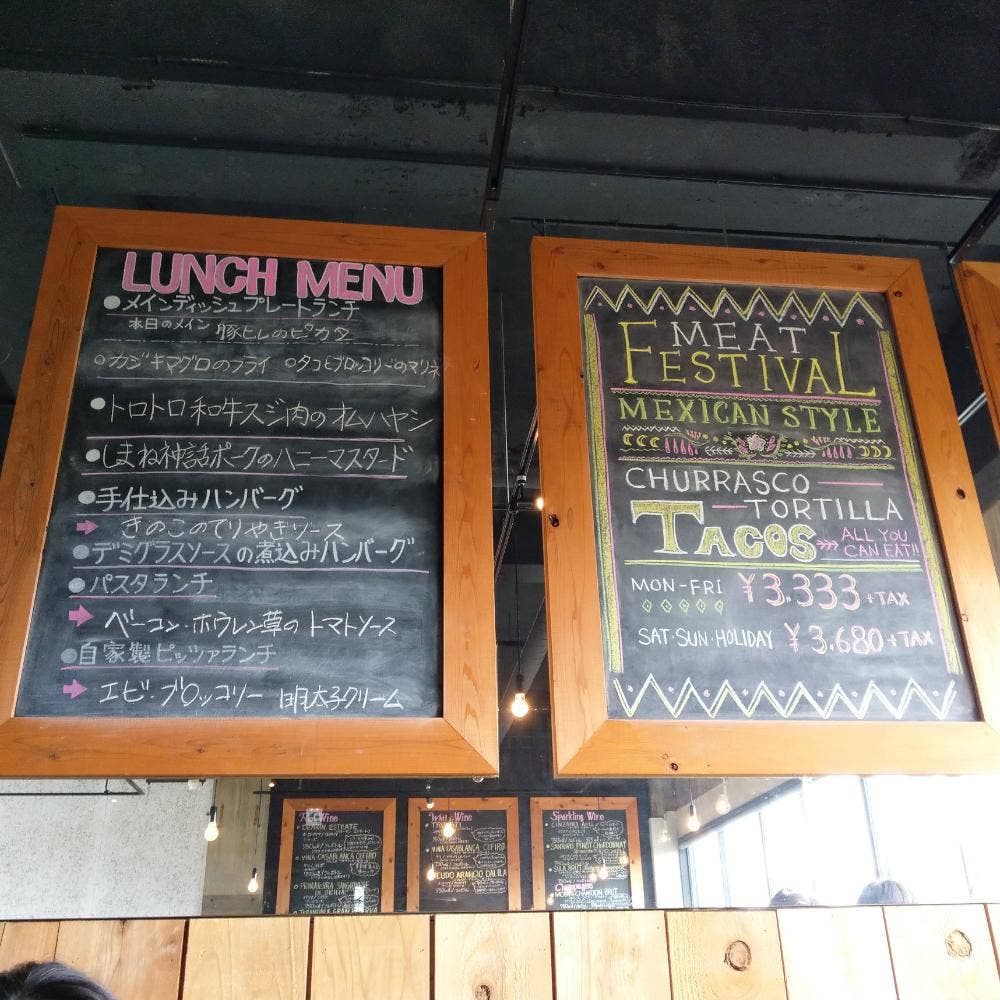 LUNCH MENU
●メインディッシュプレートランチ
本日のメイン 豚ヒレのピカタ
○カジキマグロのフライ ○タコとブロッコリーのマリネ
●トロトロ和牛スジ肉のオムハヤシ
●しまね神話ポークのハニーマスタード
●手仕込みハンバーグ
→ きのこのてりやきソース
●デミグラスソースの煮込みハンバーグ
●パスタランチ
→ ベーコン・ホウレン草のトマトソース
●自家製ピッツァランチ
→ エビ・ブロッコリー 明太子クリーム
MEAT
FESTIVAL
MEXICAN STYLE
CHURRASCO
TORTILLA
TACOS
ALL YOU
CAN EAT!!
MON-FRI ¥3.333+TAX
SAT・SUN・HOLIDAY ¥3.680+TAX
Red Wine
VINA CASABLANCA CEFIRO
White Wine
VINA CASABLANCA CEFIRO
Sparkling Wine
Champagne